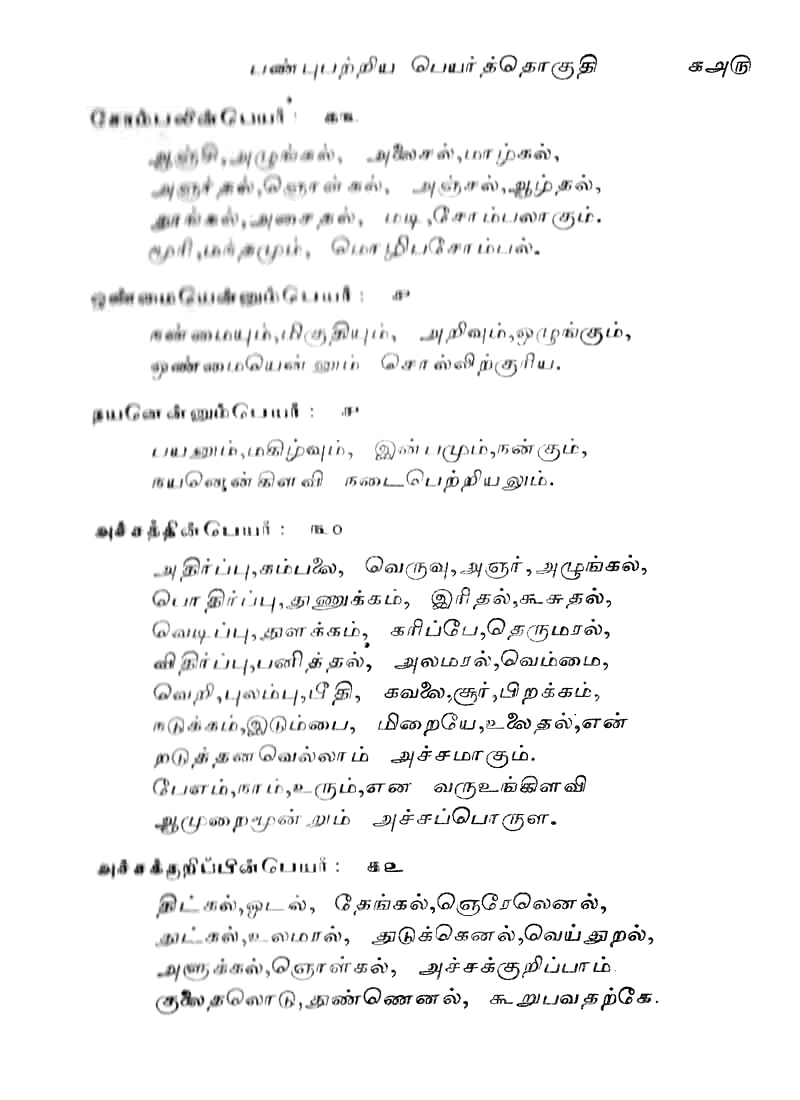 பண்புபற்றிய பெயர்த்தொகுதி கஅரு
சோம்பலின்பெயர்
ஆஞ்சி,அழுங்கல், அலைசல்,மாழ்கல்,
அஞர்தல்,ஞொள்கல், அஞ்சல்,ஆழ்தல்,
தூங்கல்,அசைதல், மடி,சோம்பலாகும்.
மூரி,மந்தமும், மொழிபசோம்பல்.
ஒண்மையென்னும்பெயர் : ச
நன்மையும்,மிகுதியும், அறிவும்,ஒழுங்கும்,
ஒண்மையென்னும் சொல்லிற்குரிய.
நயனென்னும்பெயர் : ச
பயனும்,மகிழ்வும், இன்பமும்,நன்கும்,
நயனெுன்கிளவி நடைபெற்றியலும்.
அச்சத்தின்பெயர் : ௩௦
அதிர்ப்பு,கம்பலை, வெருவு,அஞர்,அழுங்கல்,
பொதிர்ப்பு,துணுக்கம், இரிதல்,கூசுதல்,
வெடிப்பு,துளக்கம், கரிப்பே,தெருமரல்,
விதிர்ப்பு,பனித்தல், அலமரல்,வெம்மை,
வெறி,புலம்பு,பீதி, கவலை,சூர்,பிறக்கம்,
நடுக்கம்,இடும்பை, மிறையே,உலைதல்,என்
றடுத்தனவெல்லாம் அச்சமாகும்.
பேஎம்,நாம்,உரும்,என வருஉங்கிளவி
ஆமுறைமூன்றும் அச்சப்பொருள.
அச்சக்குறிப்பின்பெயர் : ௧௨
திட்கல்,ஒடல், தேங்கல்,ஞெரேலெனல்,
துட்கல்,உலமரல், துடுக்கெனல்,வெய்துறல்,
அளுக்கல்,ஞொள்கல், அச்சக்குறிப்பாம்
குலைதலொடு,துண்ணெனல், கூறுபவதற்கே.